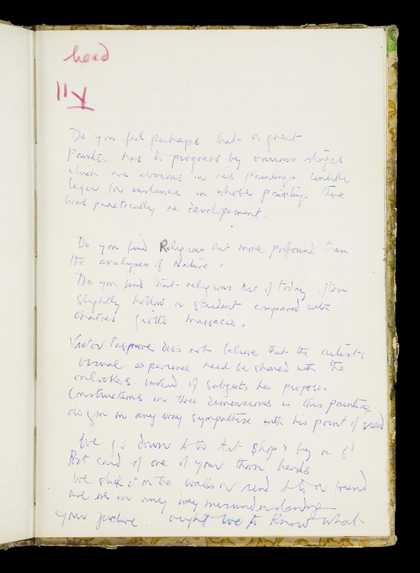 head
Do you feel perhaps that a great
Painter has to progress by various stages
which are obvious in his paintings
Leger for instance in whose painting there
was practically no developement.
Do you find Religious Art more profound than
the analyses of Nature.
Do you find that religious art of today often
slightly hollow or strident compared with
Giotto Massacio.
Victor Pasmore does not believe that the artist's
visual experience need be shared with the
onlooker instead of subjects he proposes
Constructions in three dimensions in this painting
do you in any way sympathise with his point of view
I've go down to the Art Shop & buy a
Post card of one of your thorn heads
we stick it on the walls or send it to a friend
are we in any way misunderstanding
your picture ought we to know what